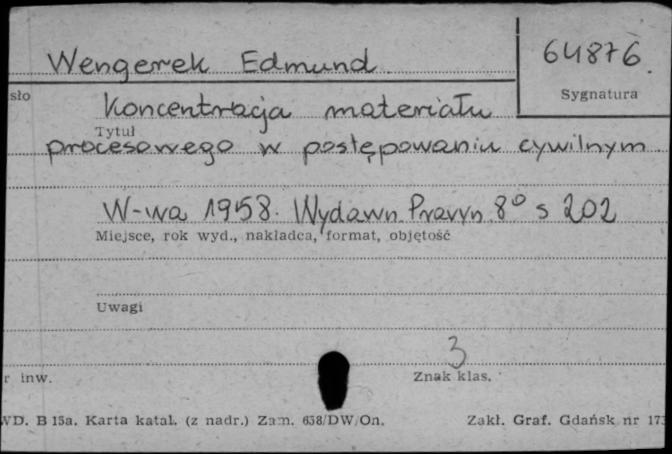 Wengerek Edmund
64876
Sygnatura
sło
Koncentracja materiału
Tytuł
procesowego w postępowaniu cywilnym
W-wa 1958. Wydawn. Prawn. 8° s 202
Miejsce, rok wyd., nakładca, format, objętość
Uwagi
3
r inw.
Znak klas.
WD. B 15a. Karta katal. (z nadr.) Zam. 658/DW/On.
Zakł. Graf. Gdańsk nr 173